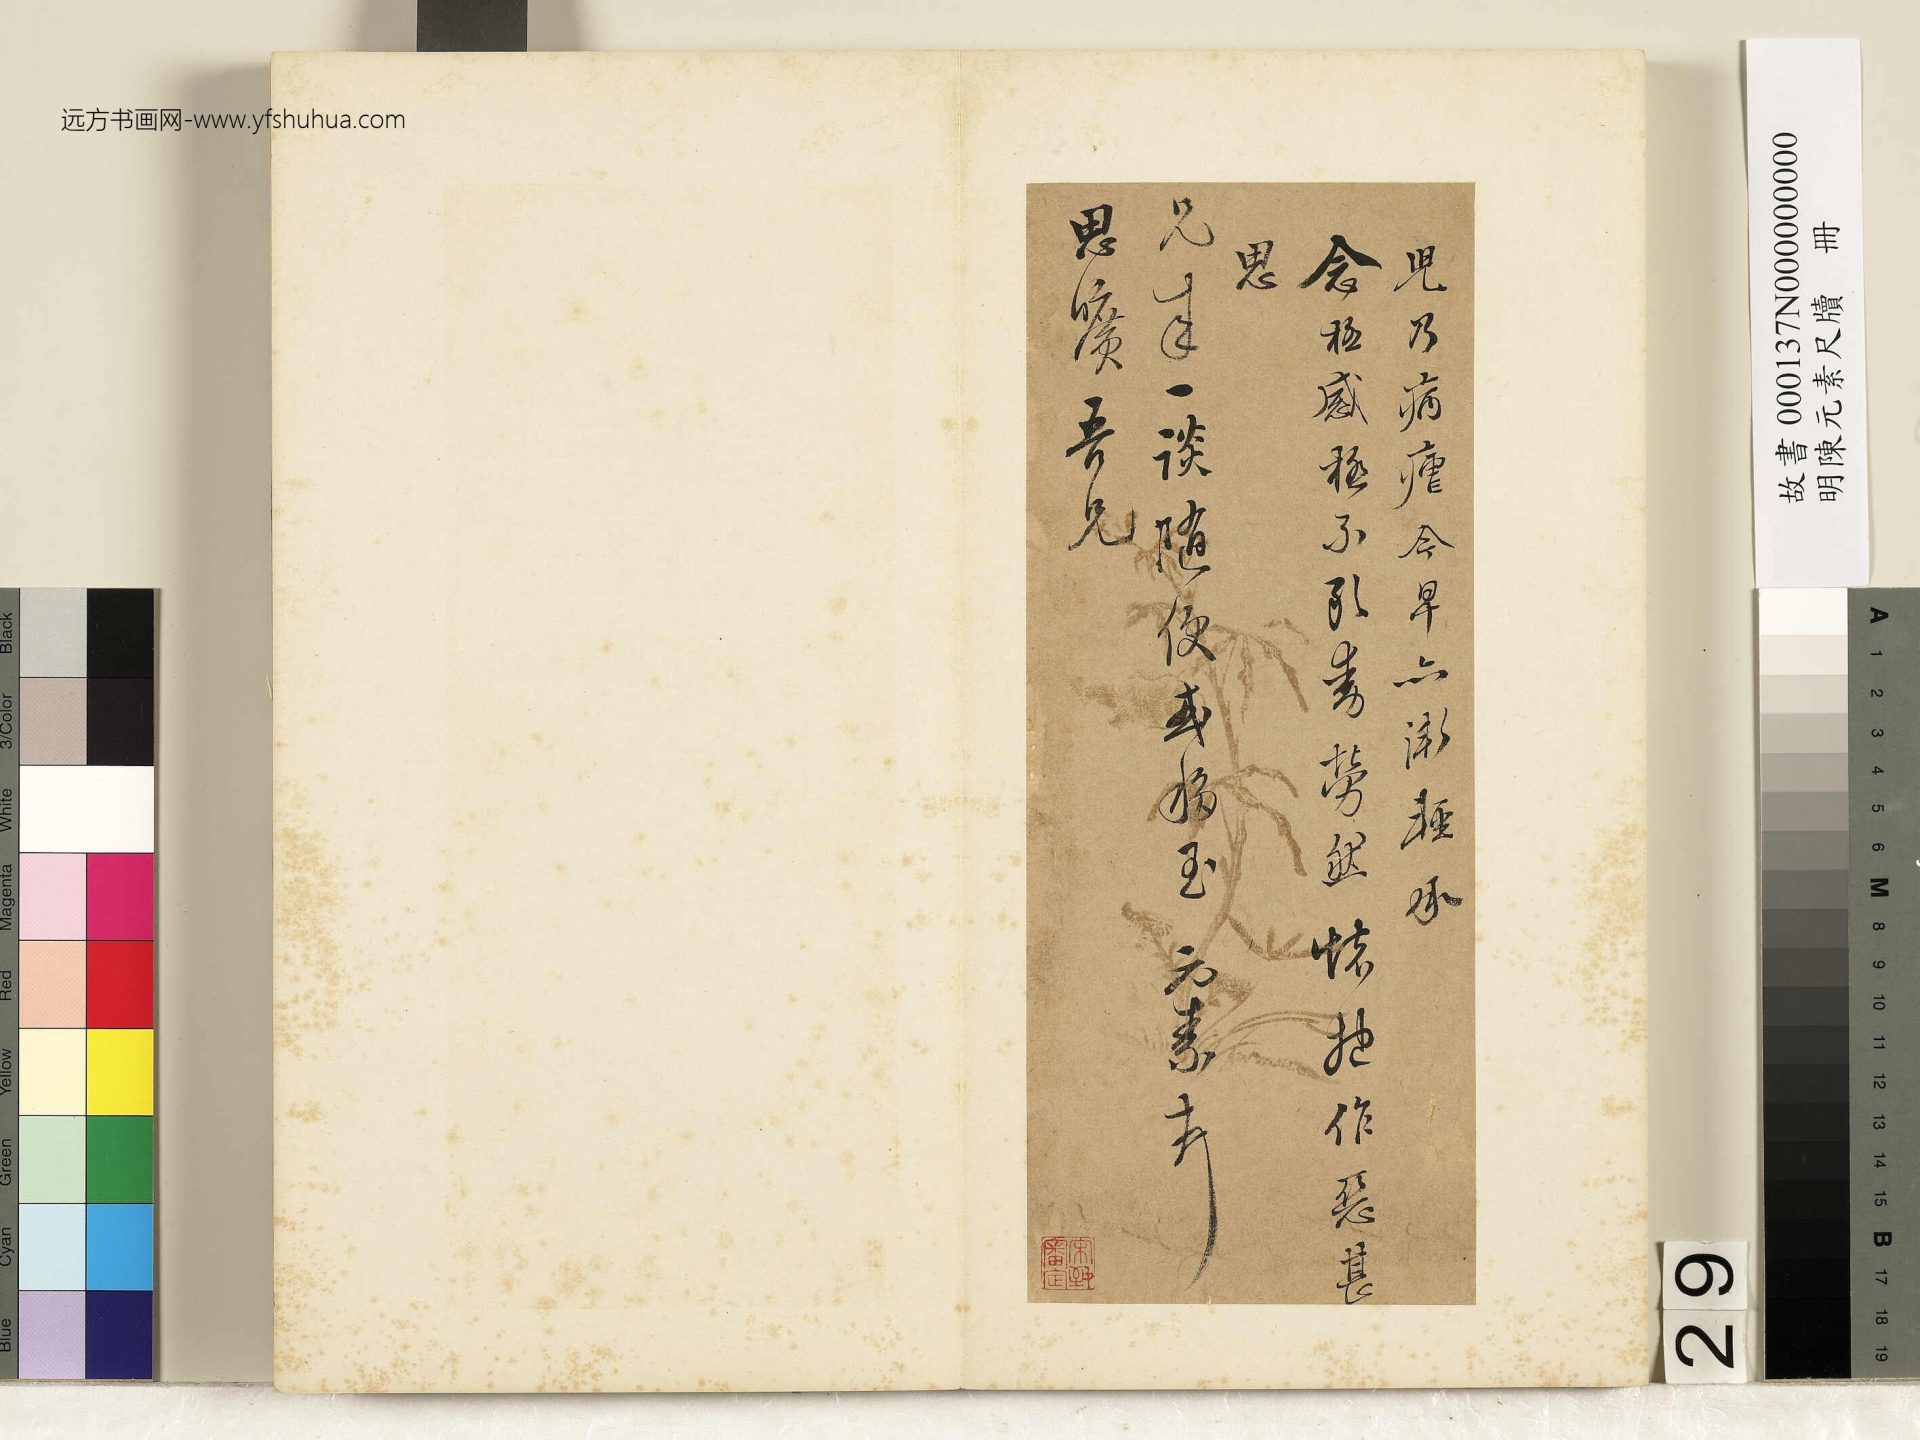 远方书画网-www.yfshuhua.com
兒乃病瘧今早亦漸輕承
念極感極不敢當勞然懷抱作惡甚
思
兄来一談隨便或移玉 元素頓
思曠吾兄
故書 000137N000000000
明陳元素尺牘 冊
29
Black
3/Color
White
Magenta
Red
Yellow
Green
Cyan
Blue
A
1
2
3
4
5
6
M
8
9
10
11
12
13
14
15
B
17
18
19